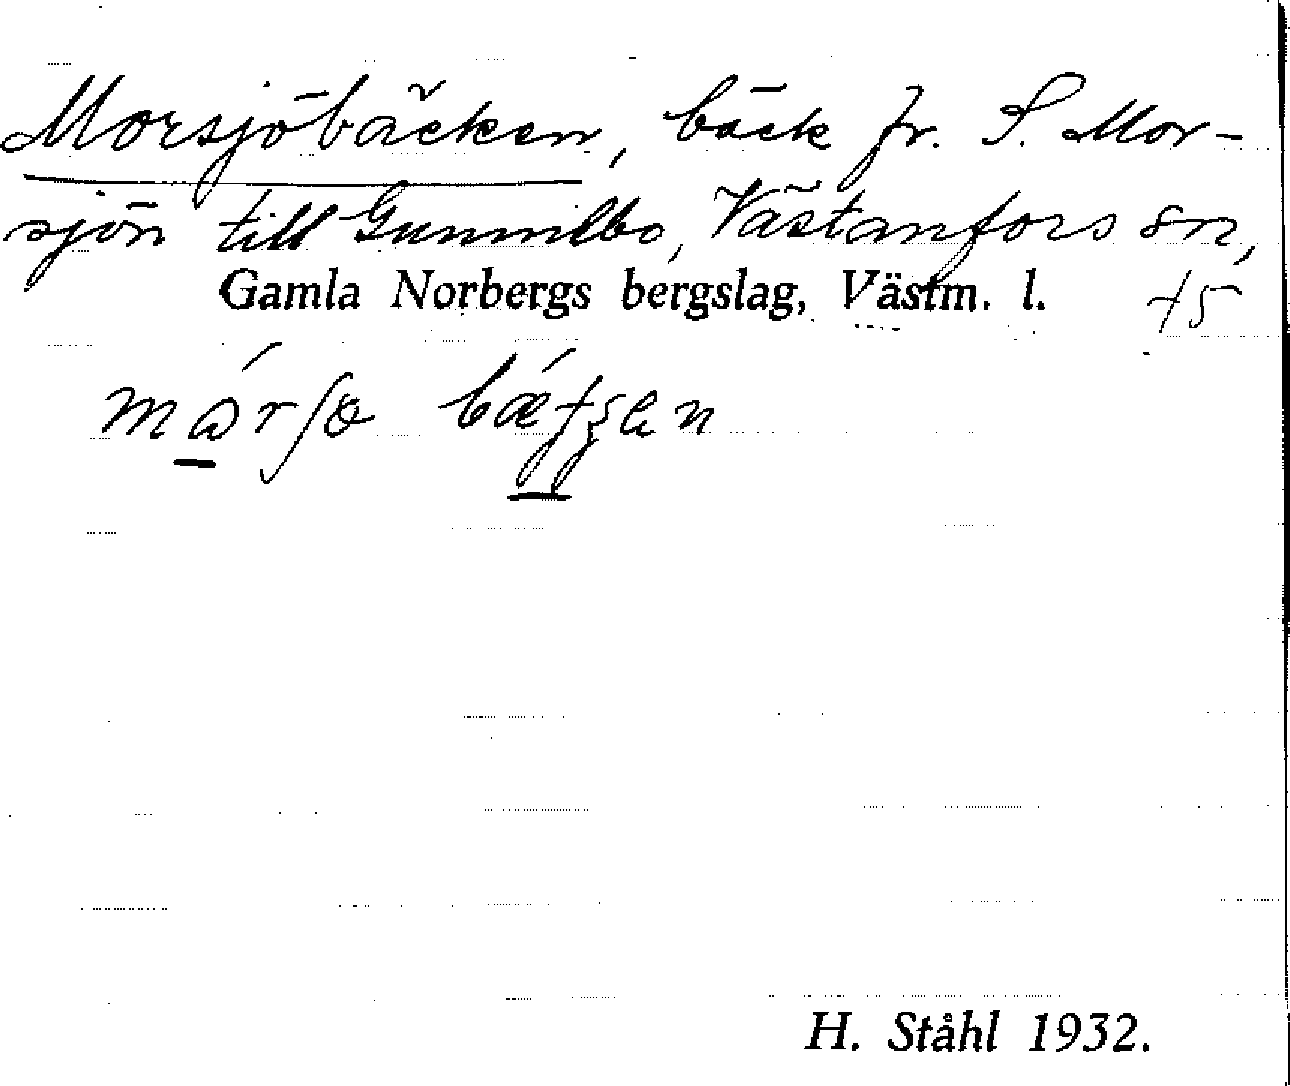 Morsjöbäcken, bäck fr. S. Mor-
sjön till Gunnilbo, Västanfors sn,
Gamla Norbergs bergslag, Västm. l. 45
H. Ståhl 1932.